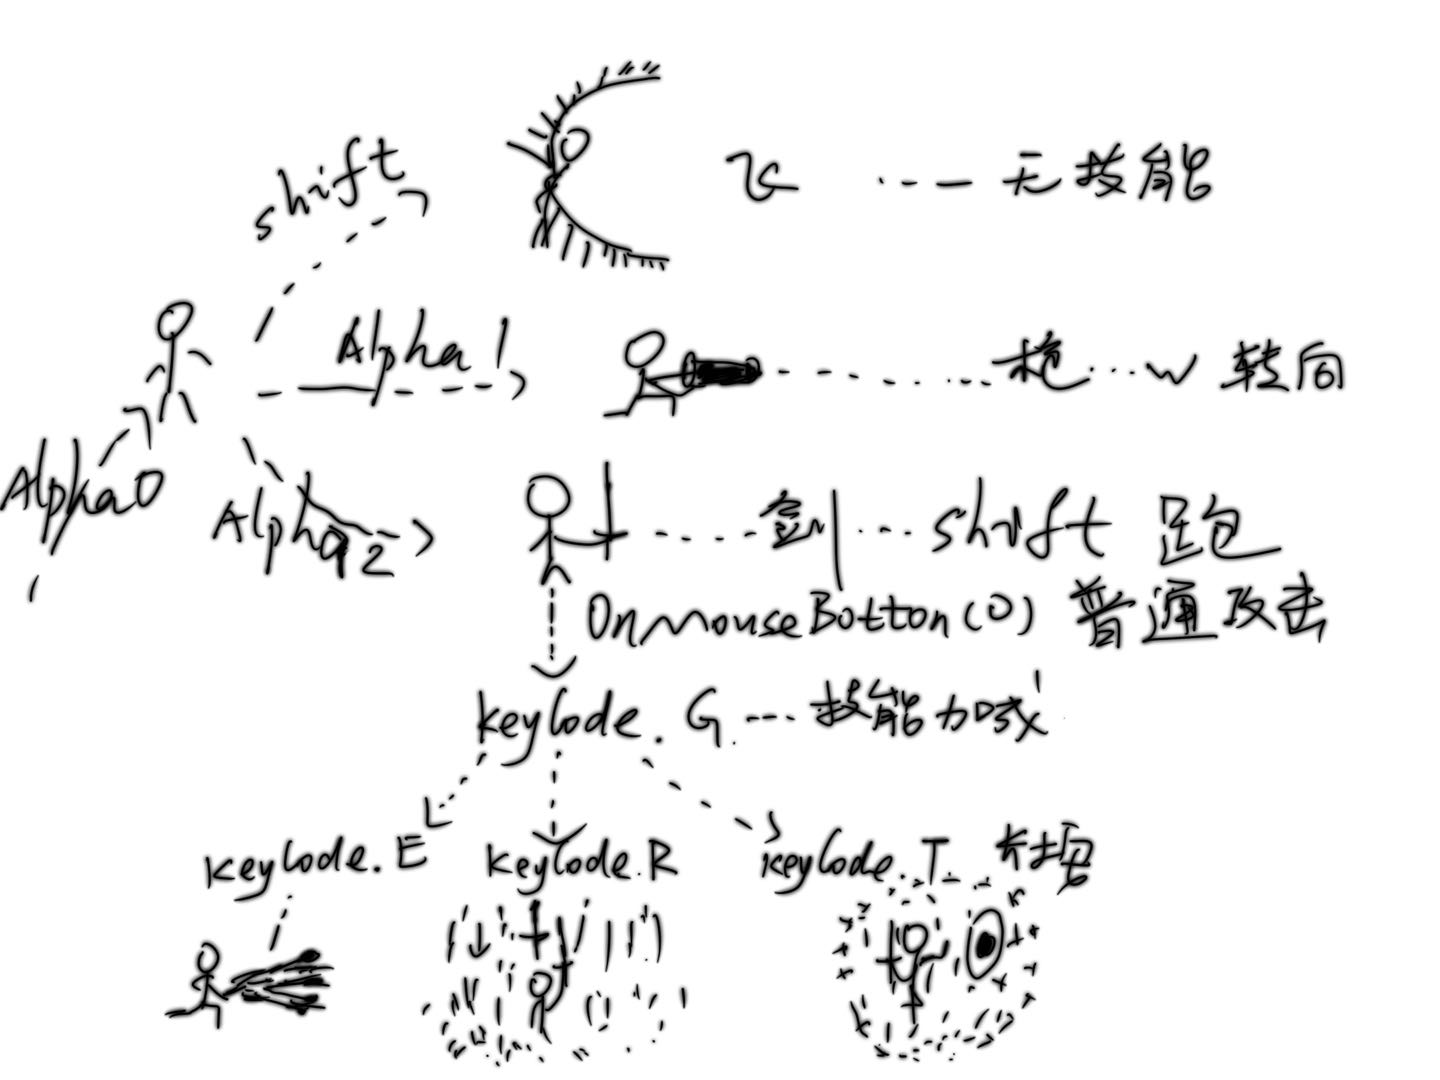 shift
飞 无技能
Alpha 1
枪 w 转向
Alpha0
Alpha2
剑 shift 跑
OnMouseBotton(0) 普通攻击
keyCode.G 技能加成
keyCode.E
keyCode.R
keyCode.T 长按